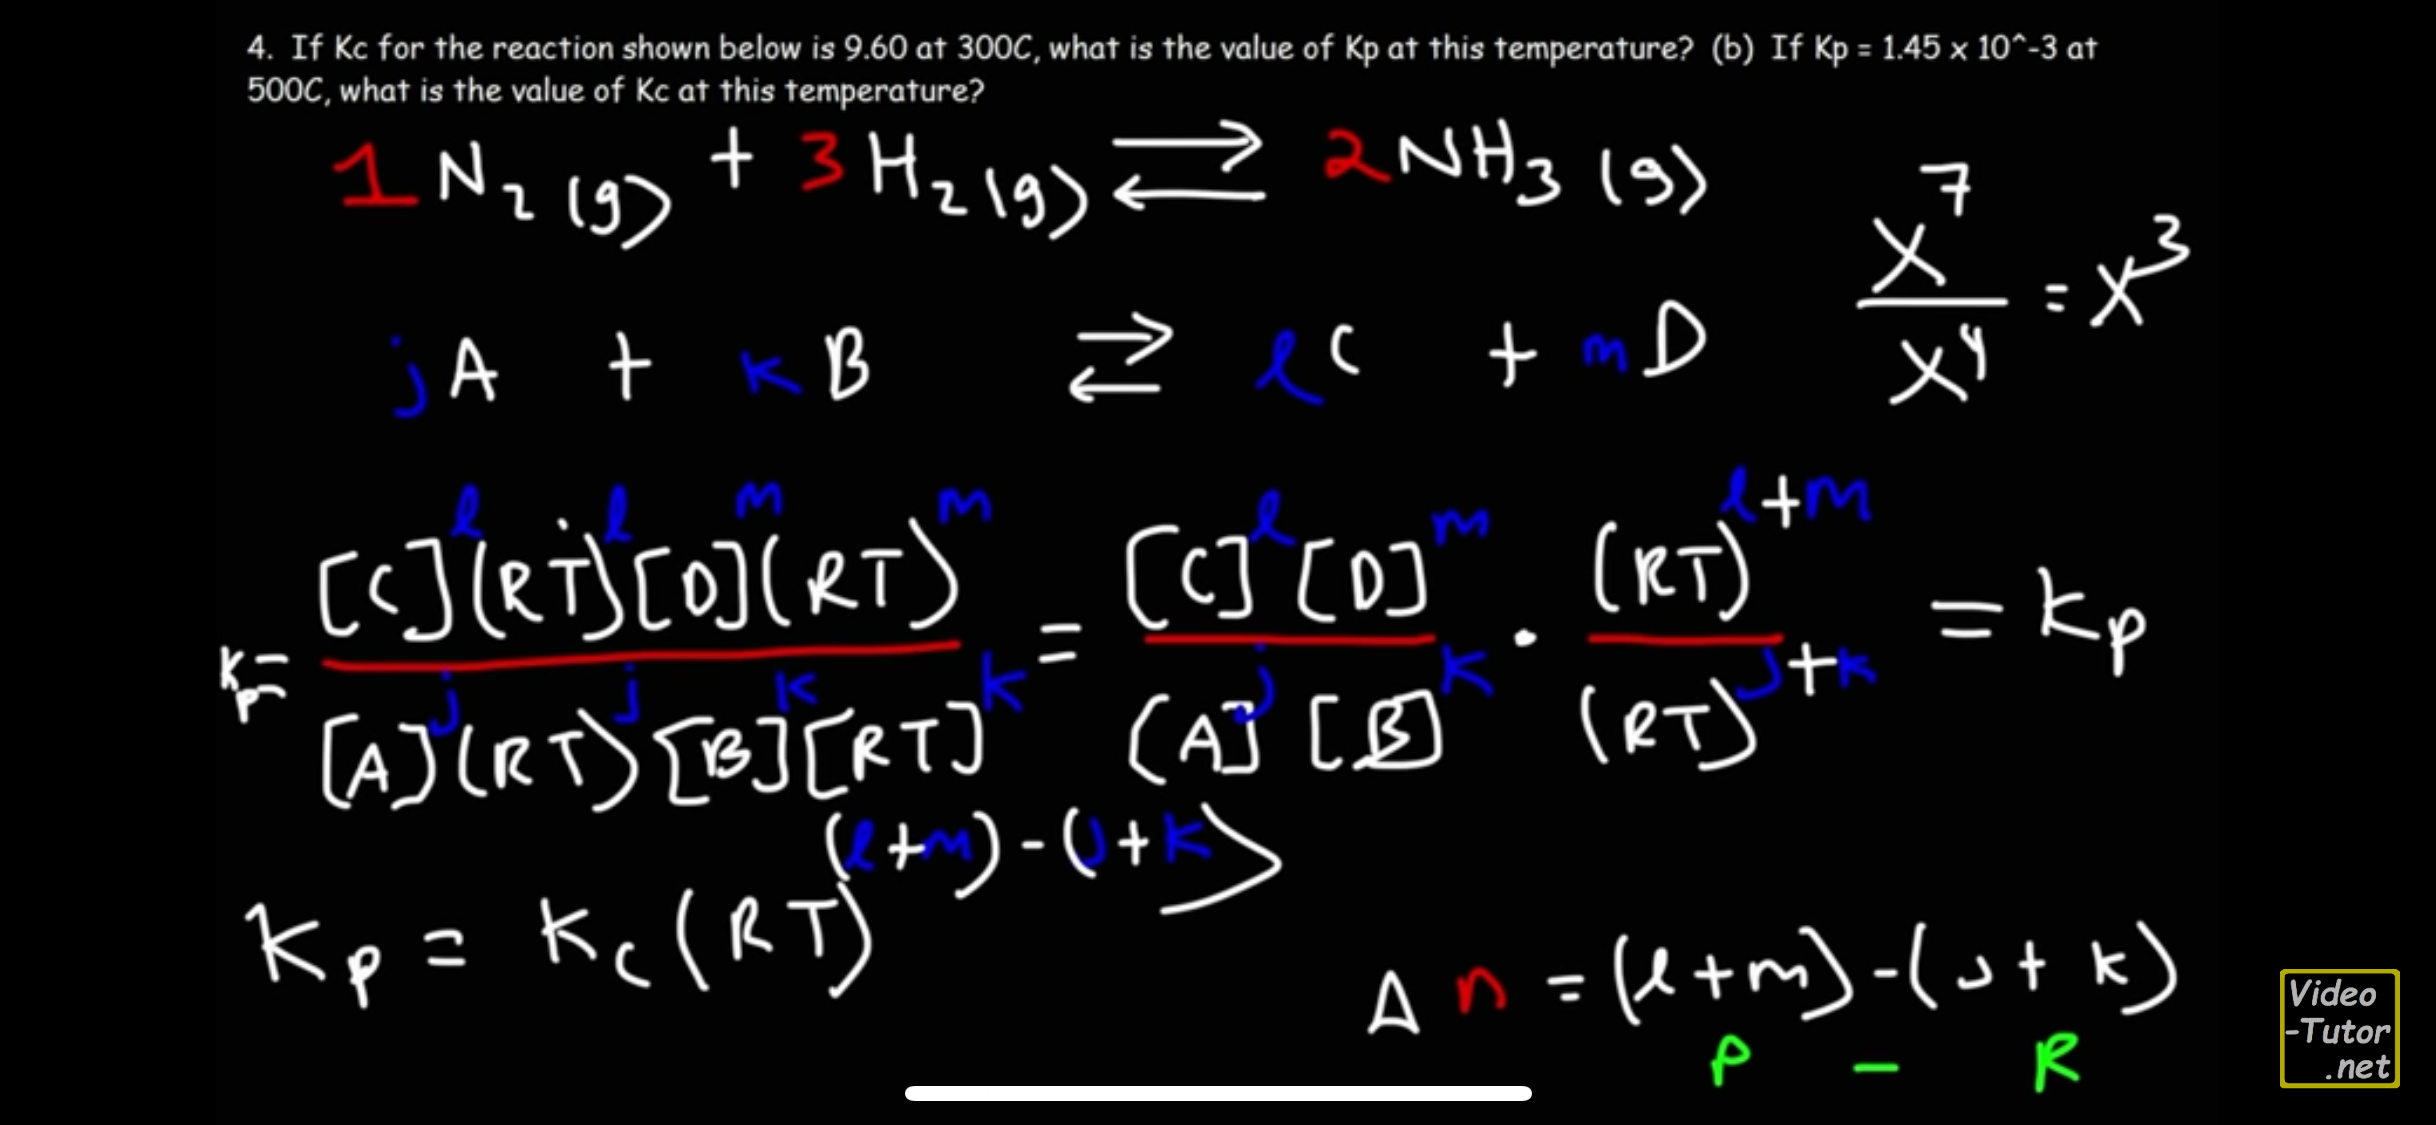 4. If Kc for the reaction shown below is 9.60 at 300C, what is the value of Kp at this temperature? (b) If Kp = 1.45 x 10^-3 at
500C, what is the value of Kc at this temperature?
1 N₂ (g) + 3 H₂ (g) ⇌ 2 NH₃ (g)
x⁷ / x⁴ = x³
jA + kB ⇌ lC + mD
Kp = [C]^l (RT)^l [D]^m (RT)^m / [A]^j (RT)^j [B]^k [RT]^k = [C]^l [D]^m / [A]^j [B]^k · (RT)^l+m / (RT)^j+k = Kp
Kp = Kc (RT)^(l+m)-(j+k)
Δn = (l+m)-(j+k)
P - R
Video
-Tutor
.net